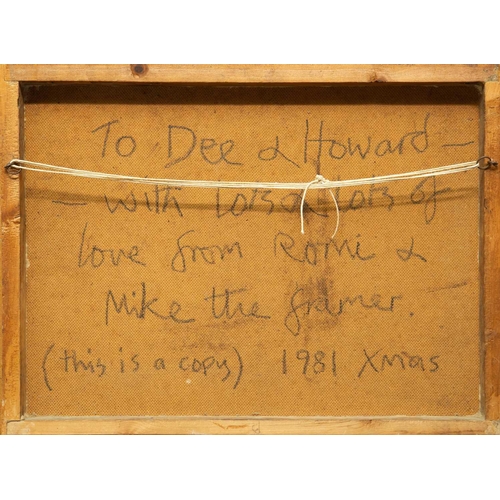 To Dee & Howard —
— with lots & lots of
love from Romi &
Mike the framer.
(this is a copy) 1981 Xmas